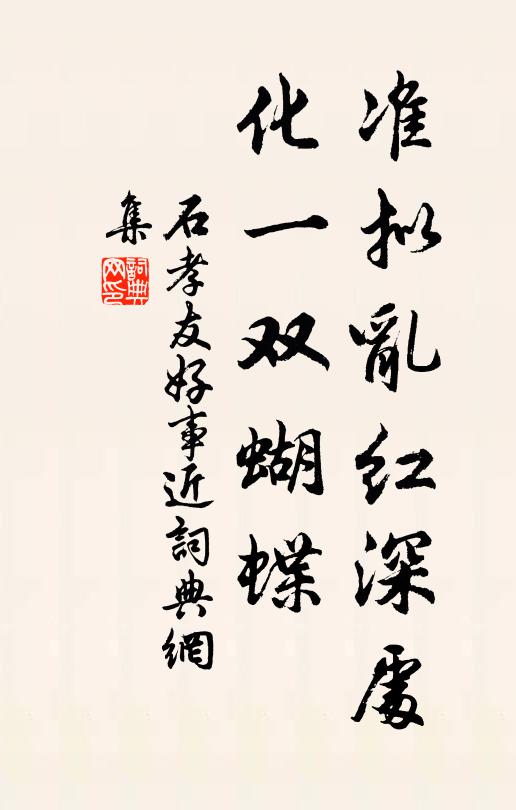 准拟亂红深處
化一双蝴蝶
石孝友好事近詞典網
集
詞典
网印